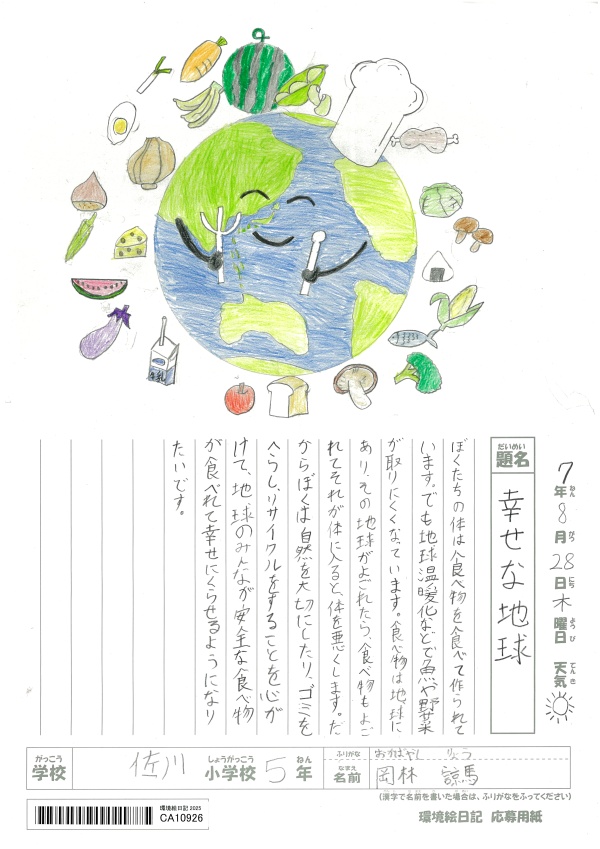 牛乳
7年8月28日木曜日 天気
ねん がつ にち ようび てんき
だいめい
題名
幸せな地球
ぼくたちの体は食べ物を食べて作られて
います。でも地球温暖化などで魚や野菜
が取りにくくなっています。食べ物は地球に
あり、その地球がよごれたら、食べ物もよご
れてそれが体に入ると、体を悪くします。だ
からぼくは自然を大切にしたり、ゴミを
へらし、リサイクルをすることを心が
けて、地球のみんなが安全な食べ物
が食べれて幸せにくらせるようになり
たいです。
がっこう しょうがっこう ねん
学校 佐川 小学校 5年
ふりがな おかばやし りょう
なまえ
名前 岡林 諒馬
(漢字で名前を書いた場合は、ふりがなをふってください)
環境絵日記 2025
CA10926
環境絵日記 応募用紙